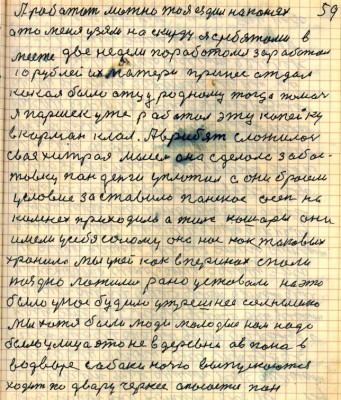 59
Я работат можно тоя ездил на конях
а то меня узяли на скирду я с рябятами в
месте две недели поработоля заработал
10 рублей их матери принес отдал
какая была отцу родному тогда помач
я паришек уже работал эту копейку
в карман клал. А в рибят сложилос
свая хитрая мисел она сделала забас
товку пан денги уплотил с они бросили
условие заставило панское сена на
конях приходили а тиже кошары они
имели у себя солому она нас как таковых
хранило мы у ней как в перинах спали
поздно ложили рано уставали на это
было умое будило утрешнее солнышко
мы хотя были люди молодие нам надо
была улица а то не в деревни ав пана в
водворе собаки ночю выпускаются
ходит по двару чернее опасается пан